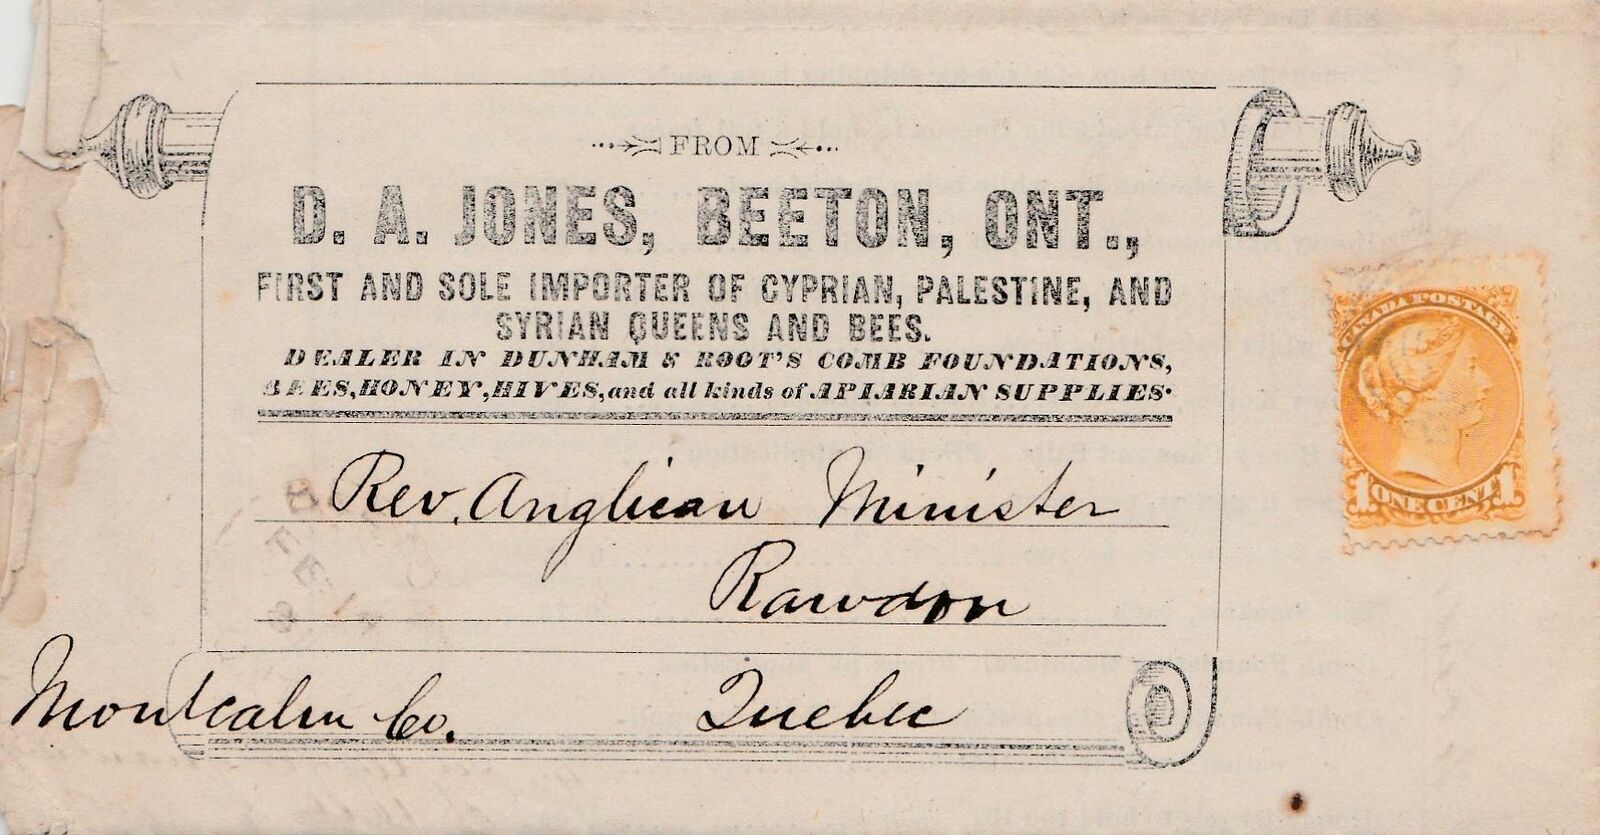 FROM
D. A. JONES, BEETON, ONT.,
FIRST AND SOLE IMPORTER OF CYPRIAN, PALESTINE, AND
SYRIAN QUEENS AND BEES.
DEALER IN DUNHAM & ROOT'S COMB FOUNDATIONS,
BEES, HONEY, HIVES, and all kinds of APIARIAN SUPPLIES.
CANADA POSTAGE
1 ONE CENT 1
Rev. Anglican Minister
Rawdon
Montcalm Co. Quebec